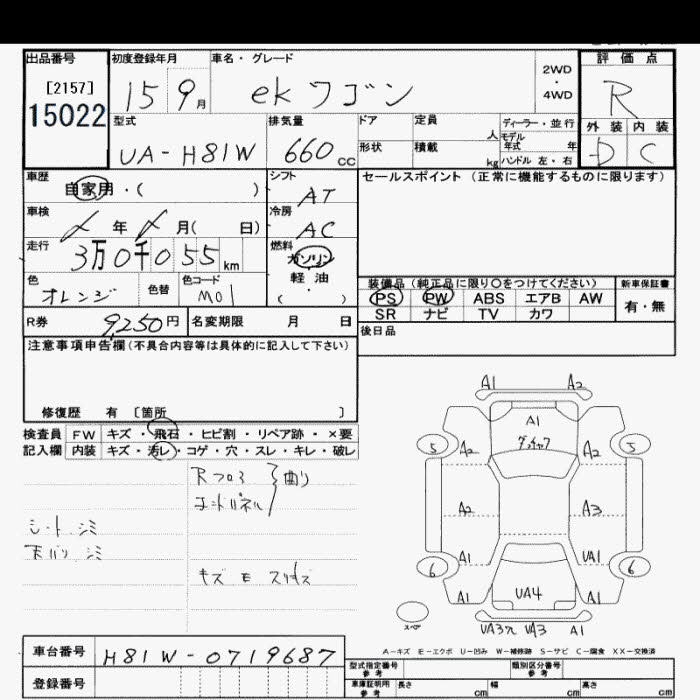 出品番号 初度登録年月 車名・グレード 評価点
[2157] 15 9月 ekワゴン 2WD・4WD R
15022
型式 排気量 ドア 定員 人 ディーラー・並行 外装 内装
UA-H81W 660cc 形状 積載 kg モデル年式 年 D C
ハンドル 左・右
車歴 自家用・( ) シフト AT セールスポイント (正常に機能するものに限ります)
車検 年 月( 日) 冷房 AC
走行 3万0千055km 燃料 ガソリン
軽油
( )
色 オレンジ 色替 色コード M01
装備品 (純正品に限り○をつけてください) 新車保証書
PS PW ABS エアB AW 有・無
SR ナビ TV カワ
R券 9,250円 名変期限 月 日 後日品
注意事項申告欄(不具合内容等は具体的に記入して下さい)
修復歴 有 [箇所 ]
検査員 FW キズ・飛石・ヒビ割・リペア跡・×要
記入欄 内装 キズ・汚レ・コゲ・穴・スレ・キレ・破レ
Rフロ
エンドパネル 曲り
シート シミ
天バリ シミ
キズ
A1 A2
A1
5 A2 A2 5
A2 A3
A1 UA1
6 6
A1 UA4 A1
UA3 A1
スペア
A-キズ E-エクボ U-凹み W-補修跡 S-サビ C-腐食 XX-交換済
車台番号 H81W-0719687
登録番号
型式指定番号 参考 類別区分番号 参考
車庫証明用 参考 長さ cm 幅 cm 高さ cm